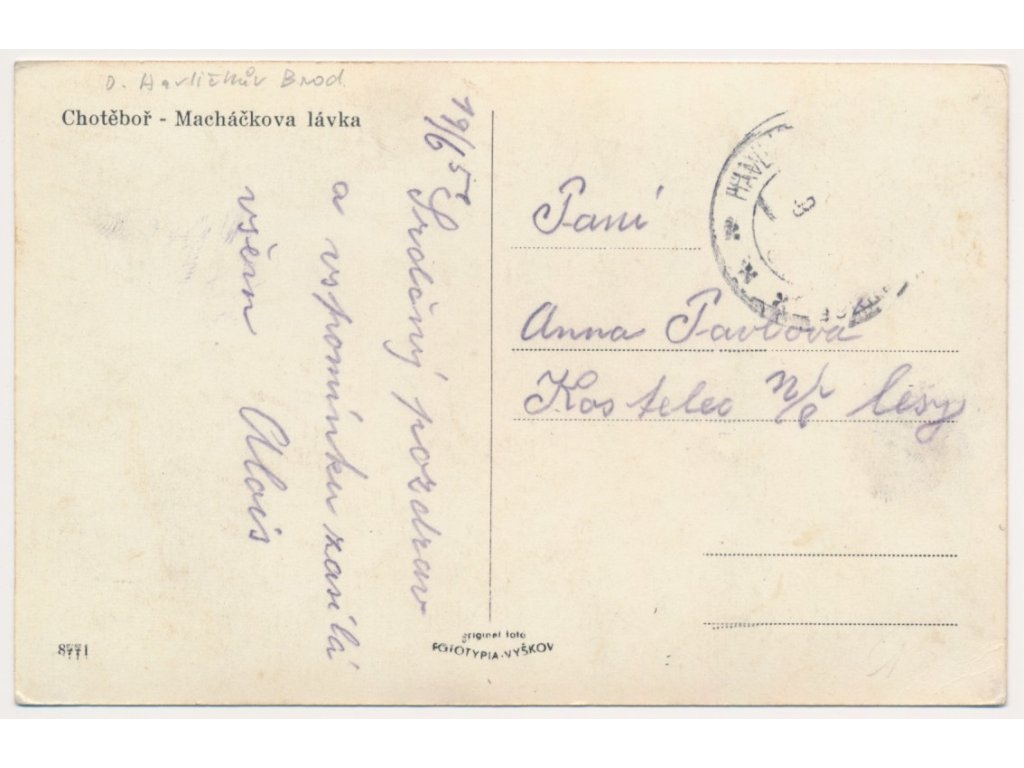 o. Havlíčkův Brod
Chotěboř - Macháčkova lávka
Srdečný pozdrav
a vzpomínku zasílá
všem Alois
Paní
Anna Pavlova
Kostelec n/č lesy
HAVL
3
8771
original foto
FOTOTYPIA-VYŠKOV